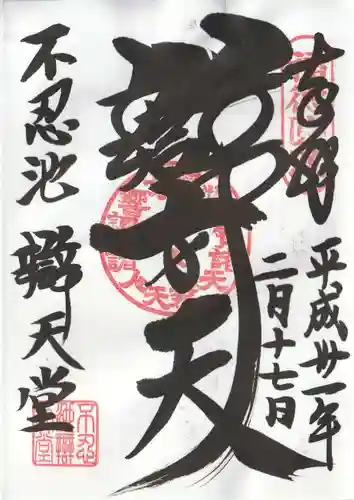 奉拝
平成廿一年
二月十七日
辯才天
不忍池 辯天堂
不忍
池辯
天堂